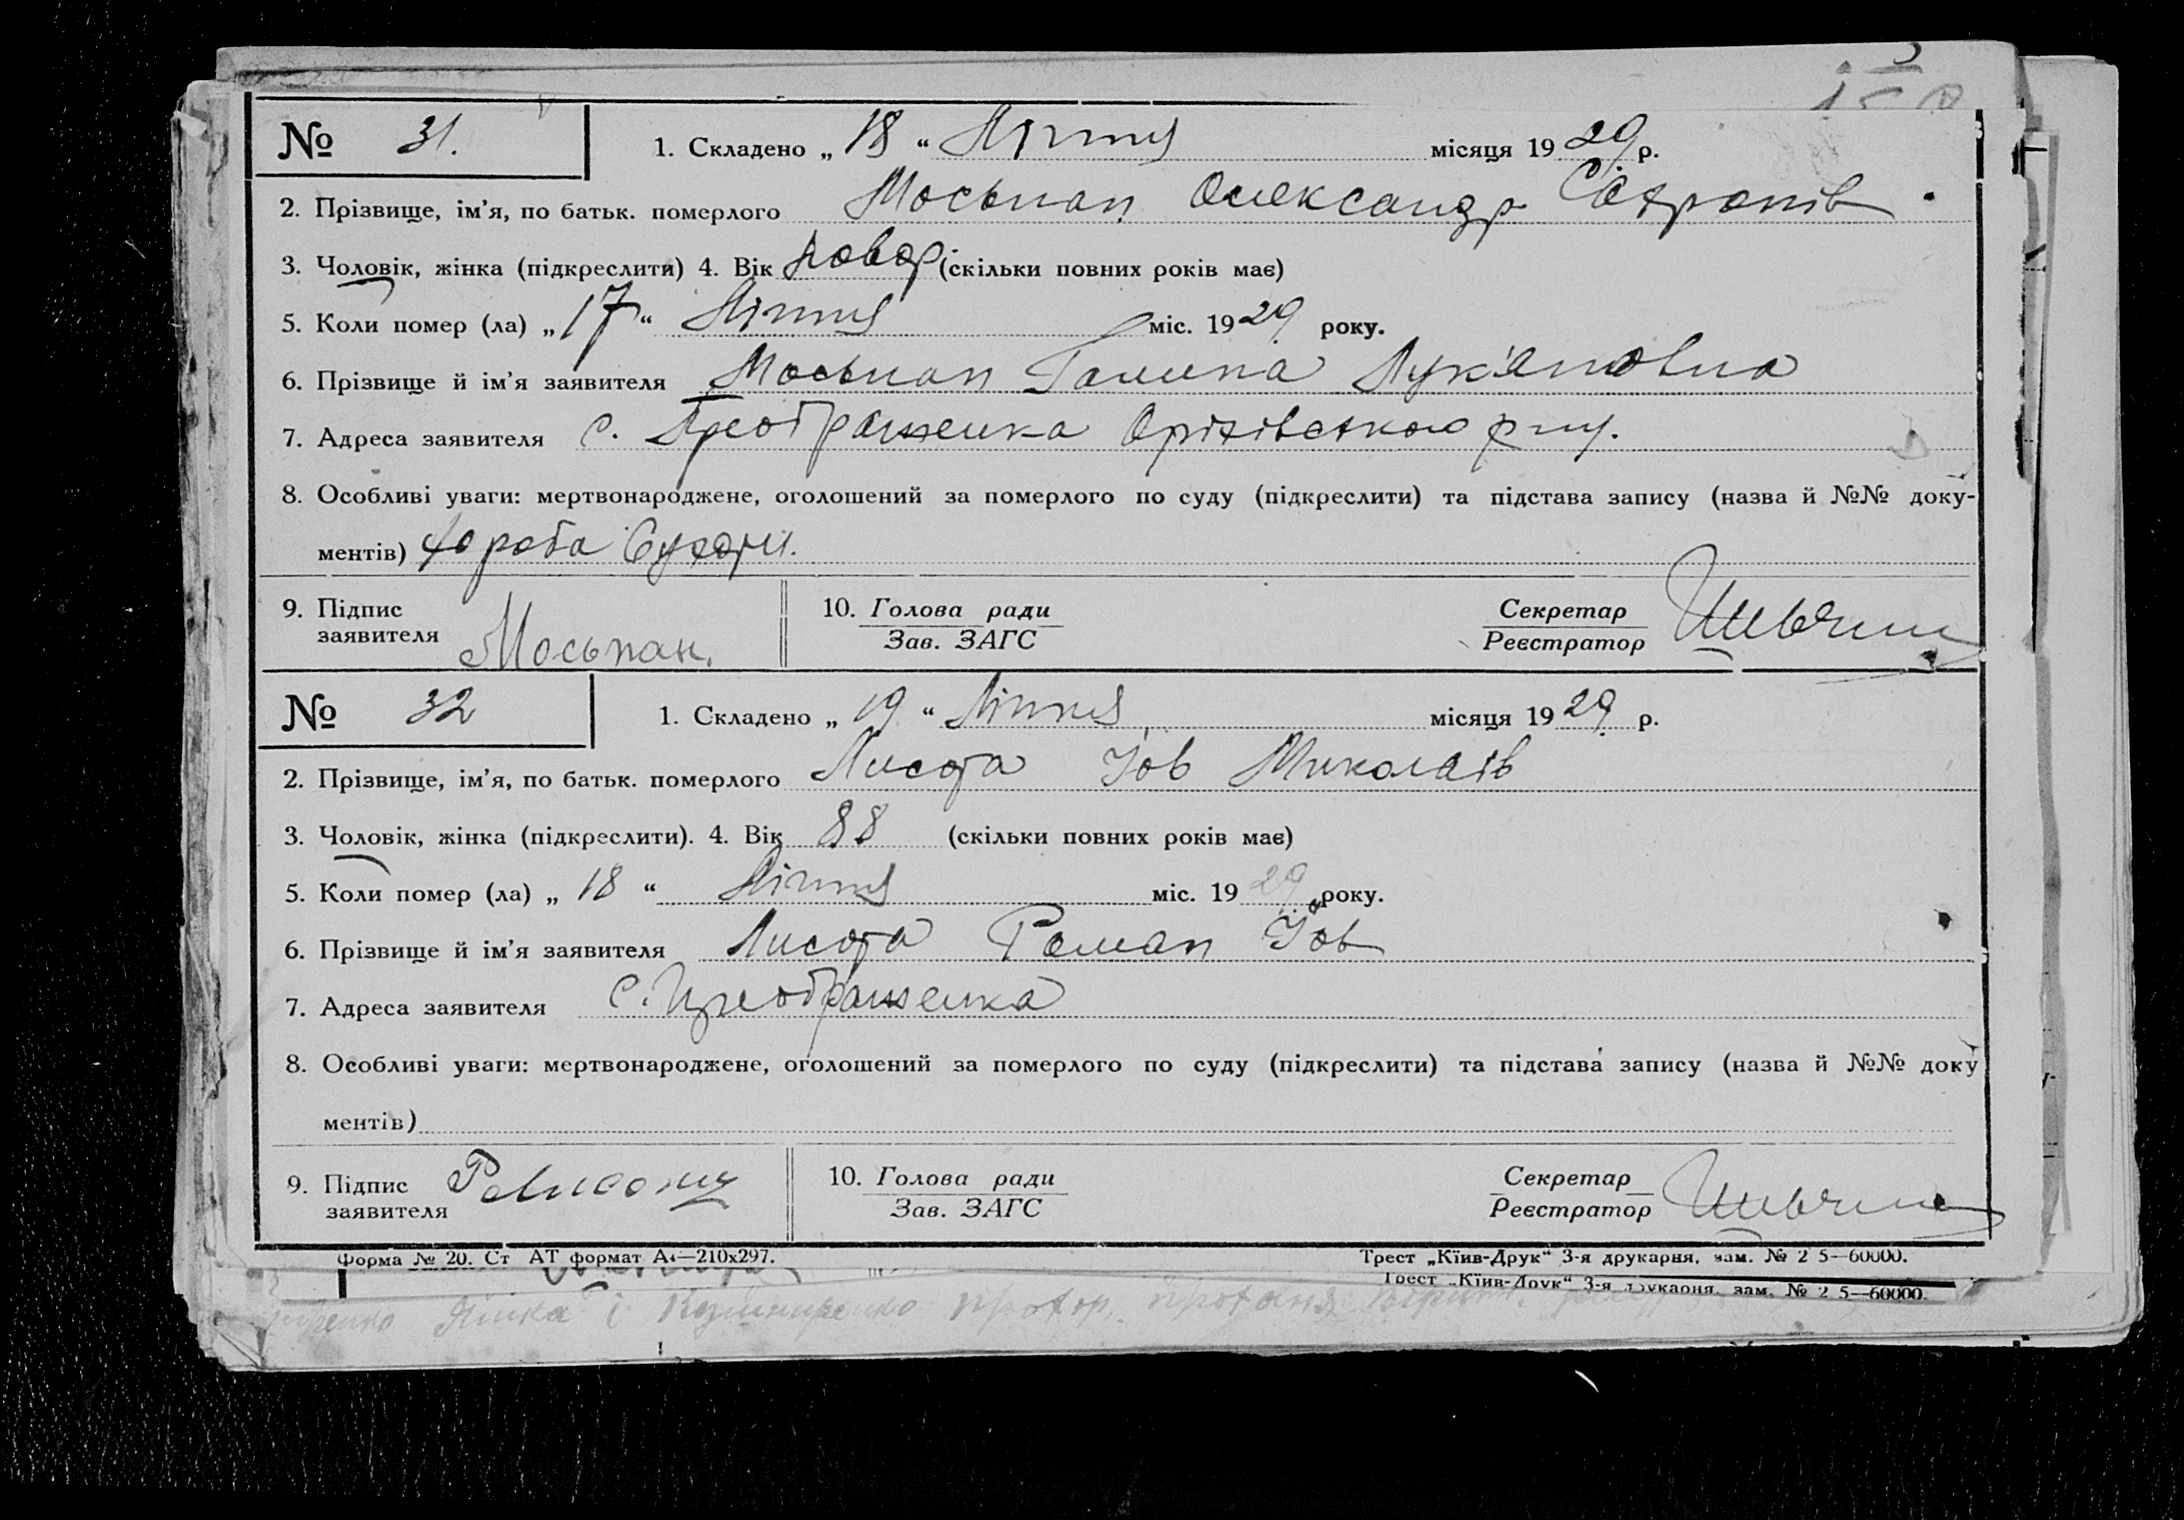 № 31. 1. Складено „ 18 “ Липня місяця 1929 р.
2. Прізвище, ім’я, по батьк. померлого Мосьпан Олександр
3. Чоловік, жінка (підкреслити) 4. Вік (скільки повних років має)
5. Коли помер (ла) „ 17 “ Липня міс. 1929 року.
6. Прізвище й ім’я заявителя Мосьпан Галина Лук'яновна
7. Адреса заявителя с. Преображенка Оріхівського р-ну.
8. Особливі уваги: мертвонароджене, оголошений за померлого по суду (підкреслити) та підстава запису (назва й №№ доку-
ментів) Хороба
9. Підпис 10. Голова ради Секретар
заявителя Мосьпан. Зав. ЗАГС Реєстратор
№ 32 1. Складено „ 19 “ Липня місяця 1929 р.
2. Прізвище, ім’я, по батьк. померлого Лисота Іов Миколаїв
3. Чоловік, жінка (підкреслити). 4. Вік 88 (скільки повних років має)
5. Коли помер (ла) „ 18 “ Липня міс. 1929 року.
6. Прізвище й ім’я заявителя Лисота Роман Іов
7. Адреса заявителя с. Преображенка
8. Особливі уваги: мертвонароджене, оголошений за померлого по суду (підкреслити) та підстава запису (назва й №№ доку
ментів)
9. Підпис 10. Голова ради Секретар
заявителя Зав. ЗАГС Реєстратор
Форма № 20. Ст АТ формат А4—210х297. Трест „Київ-Друк“ 3-я друкарня, зам. № 2 5—60000.
Трест „Київ-Друк“ 3-я друкарня, зам. № 2 5—60000.